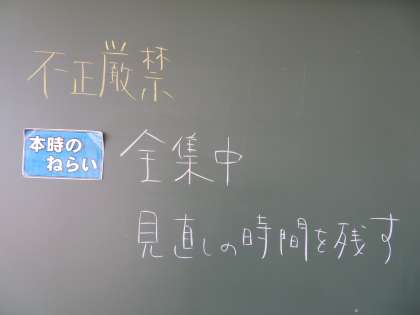 不正厳禁
本時の
ねらい
全集中
見直しの時間を残す